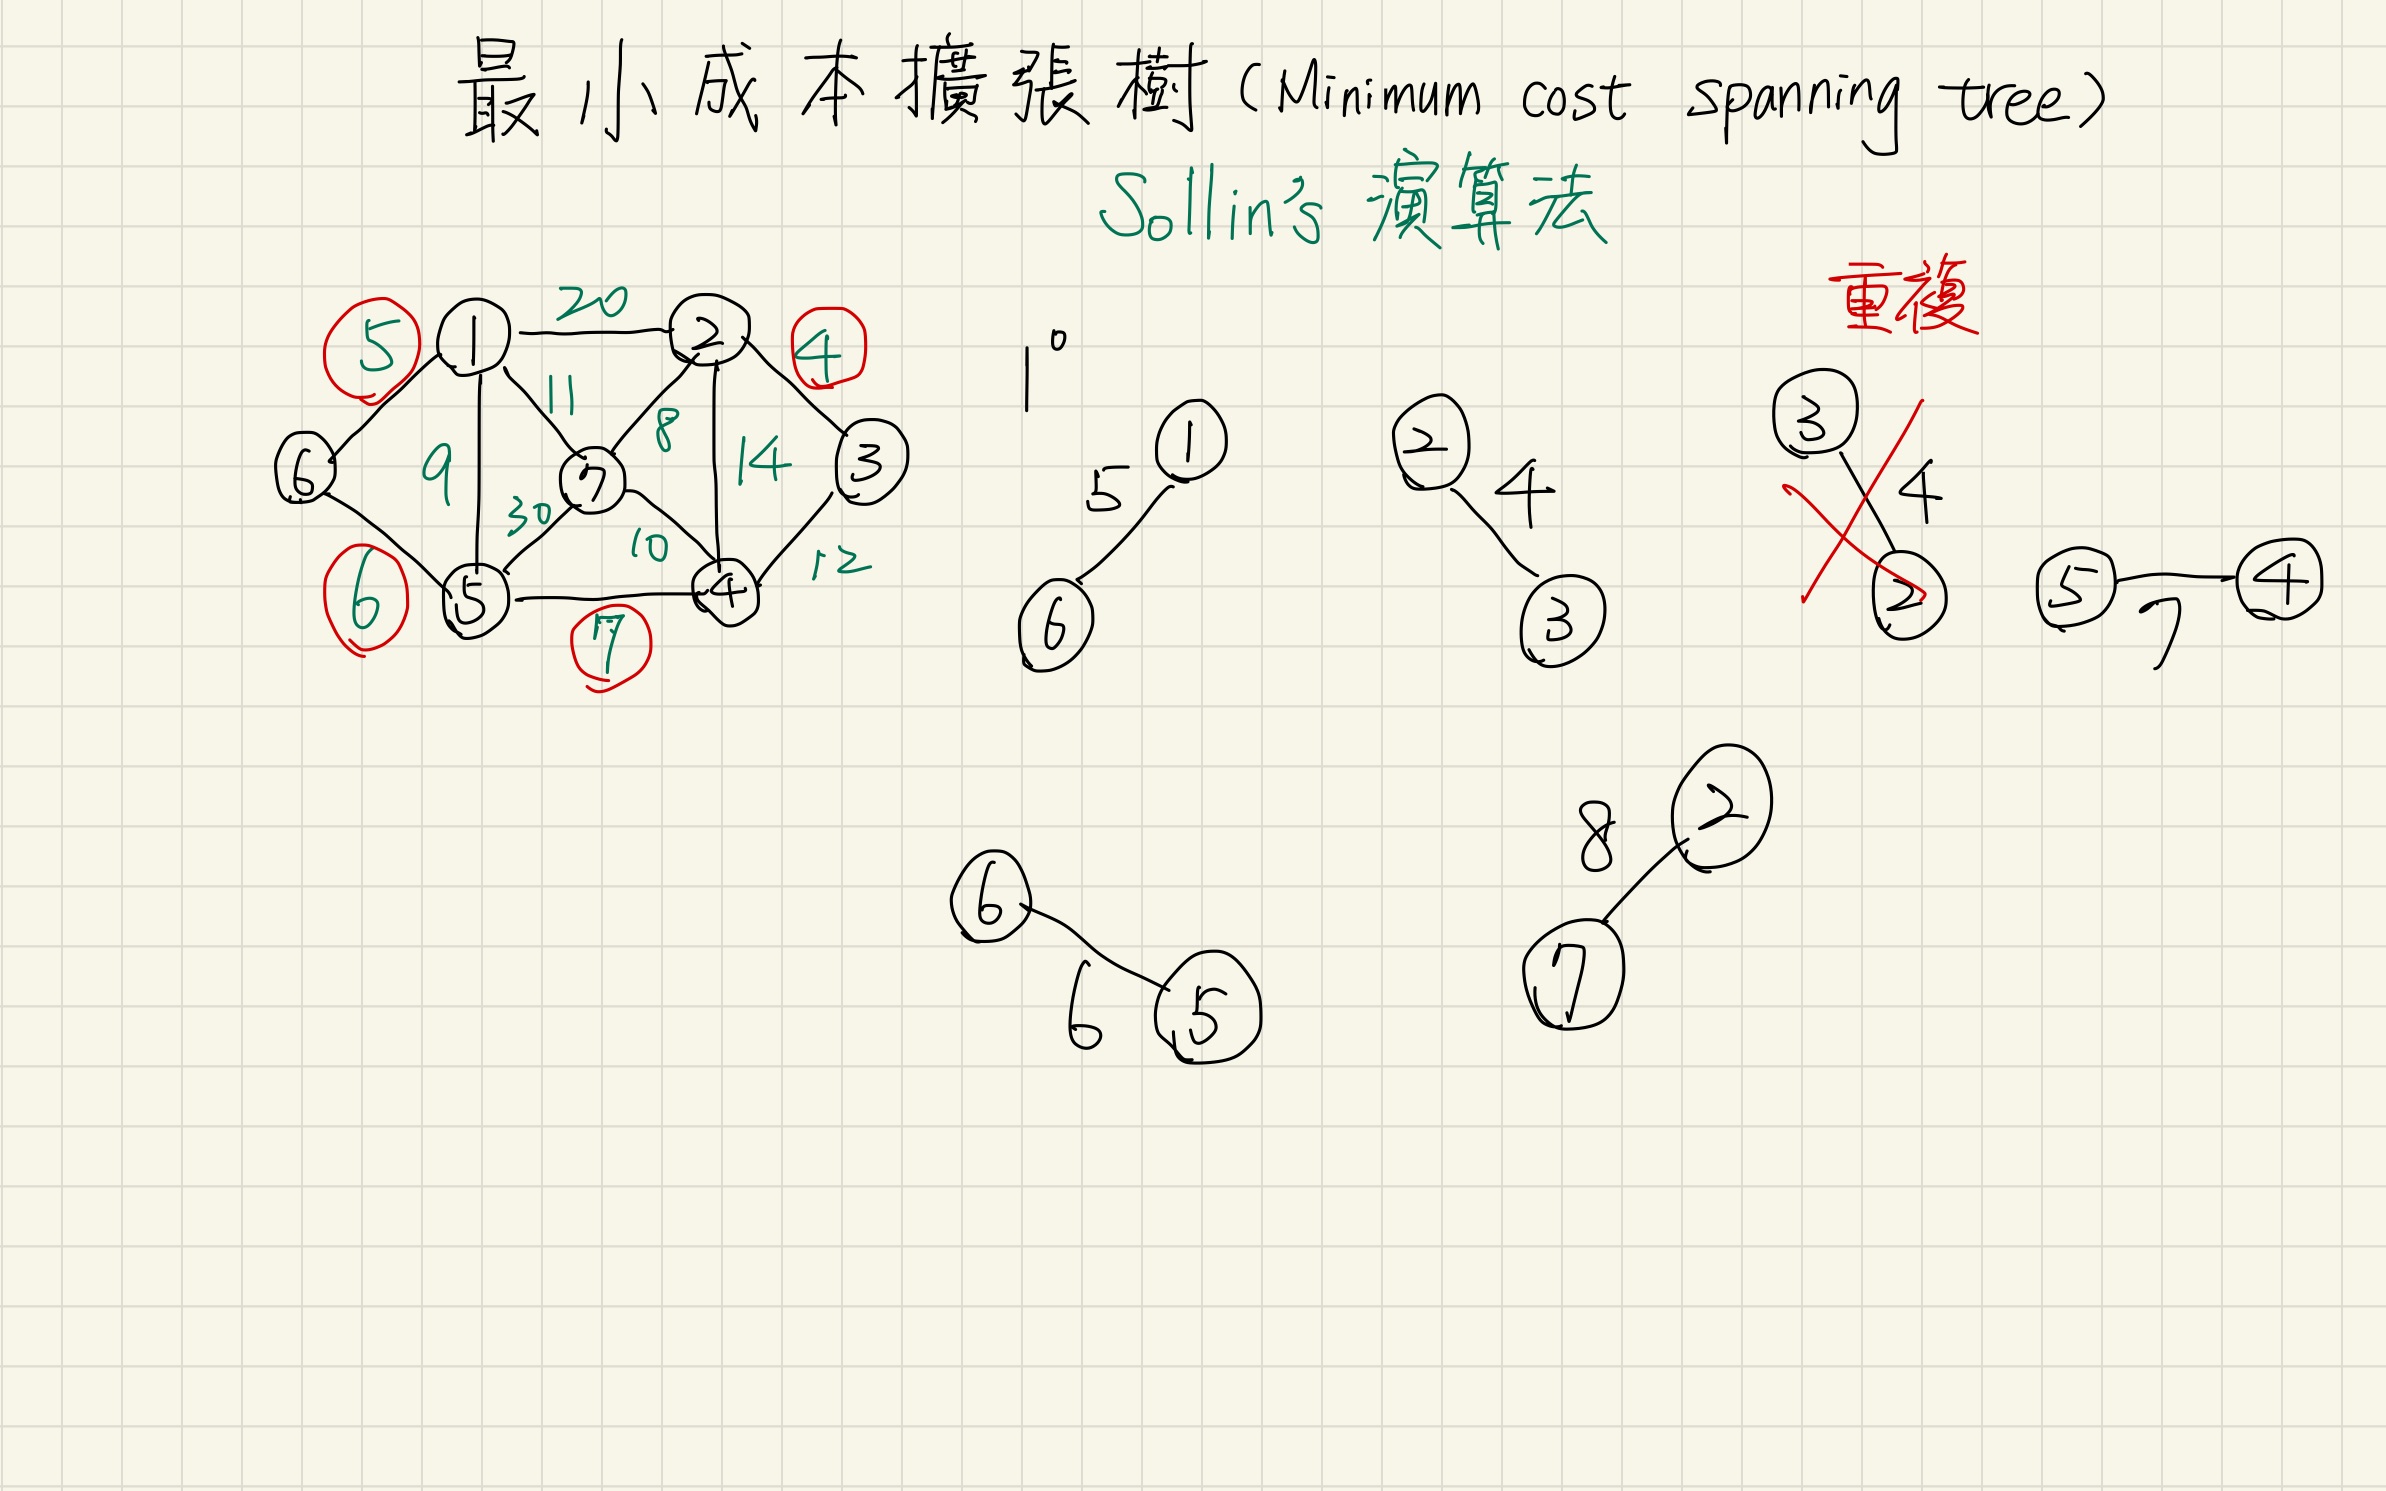 最小成本擴張樹(Minimum cost spanning tree)
Sollin's 演算法
重複
5 1 20 2 4
11 8
6 9 7 14 3
30 10 12
6 5 7 4
1°
1 5 6
2 4 3
3 4 2
5 7 4
6 6 5
2 8 7